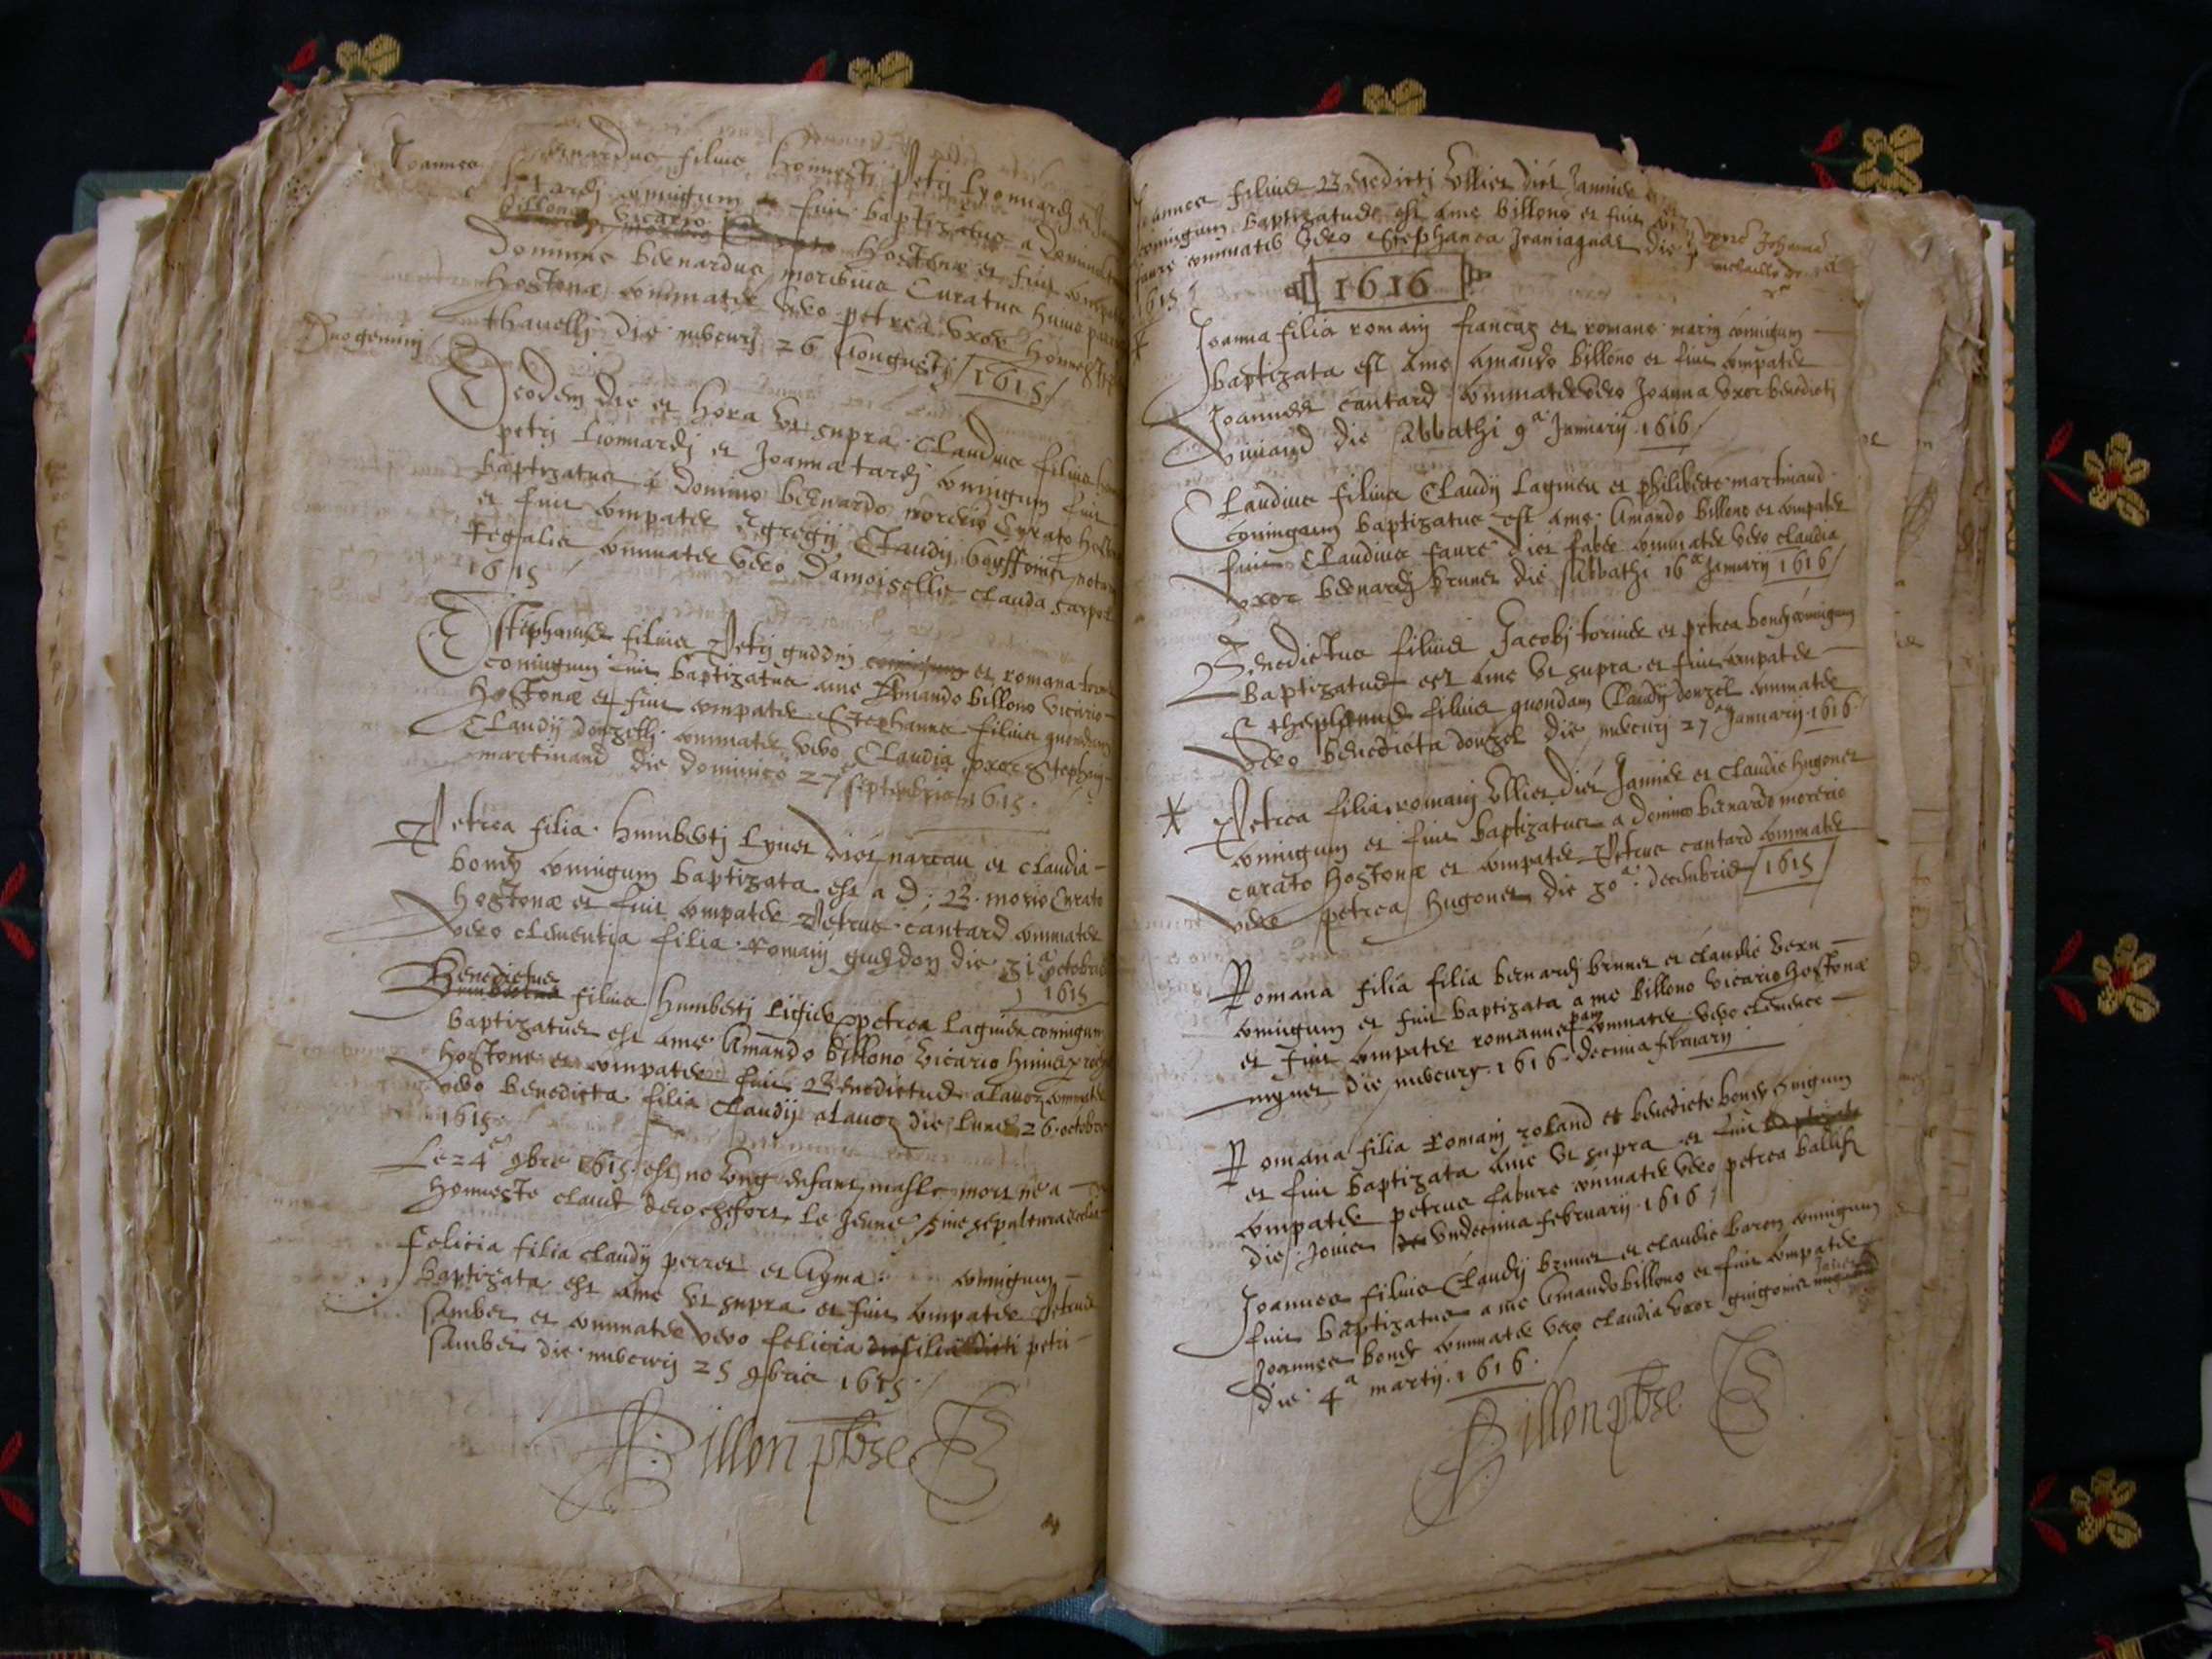 Joannes
Bernardus filius honnesti Petri Lyonnardi et J
tardi coniugum fuit baptizatus a Domino
billono vicario Hostonæ et fuit compater
Dominus bernardus morerius Curatus huius par
Hostonæ commater vero petrea uxor honnesti
thavelli die mercurij 26 Aougusti 1615
Duo gemini
Eodem die et hora ut supra Claudius filius hon
petri Lionnardi et Joanna tardi coniugum fuit
baptizatus a domino bernardo morerio Curato Hosto
et fuit compater Egregij Claudij boyssonier notar
Regalis commater vero Damoiselle clauda carpot
1615
Estephanus filius Petri gueddin coniugum et romana
coniugum fuit baptizatus a me Amando billono vicario
Hostonæ et fuit compater Stephanus filius quondam
Claudij donzelli commater vero Claudia uxor Stephani
martinand die dominico 27 septembris 1615
Petrea filia humberti Lynet diet narcau et claudia
bomy coniugum baptizata est a D. B. morio Curato
Hostonæ et fuit compater Petrus cantard commater
vero clementia filia Romani gueddon die 31a octobris
1615
Benedictus
filius humberti Ligier petrea lagnier coniugum
baptizatus est a me Amando billono vicario huius
Hostone et compater fuit Benedictus alavoz commater
vero benedicta filia Claudij alavoz die lune 26 octobre
1615
Le 24e 9bre 1615 est no ung enfant masle mort né a
honneste claude derochefort le Jeune sine sepultura
felicia filia claudij perret et Ayma coniugum
baptizata est a me ut supra et fuit compater Petrus
sambet et commater vero felicia filia petri
sambet die mercurij 25 9bris 1615
A. Billon pbre
Joannes filius Benedicti Ollier diet Jannier
coniugum baptizatus est a me billono et fuit
faure commater vero Stephanea die
uxore Johanna
1615
1616
Joanna filia romani francaz et romane marin coniugum
baptizata est a me amando billono et fuit compater
Joannes cantard commater vero Joanna uxor benedicti
viuiand die sabbathi 9a Januarij 1616
Claudius filius Claudij Lagnier et philiberte martinand
coniugum baptizatus est a me Amando billono et compater
fuit Claudius faure diet fabre commater vero claudia
uxor bernardi brunet die sabbathi 16a January 1616
Benedictus filius Jacobi torinier et petrea bomy coniugum
baptizatus est a me ut supra et fuit compater
Stephanus filius quondam Claudij donzel commater
vero benedicta donzel die mercurij 27a January 1616
Petrea filia romani Ollier diet Jannier et claudie hugonet
coniugum et fuit baptizatus a domino bernardo morerio
curato Hostonæ et compater Petrus cantard commater
vero petrea hugonet die 30a decembris 1615
Romana filia filia bernardi brunet et claudie
coniugum et fuit baptizata a me billono vicario hostonæ
et fuit compater romannus pam commater vero clemence
mynet die mercury 1616 decima february
Romana filia Romani roland et benedicte bomy coniugum
et fuit baptizata a me ut supra et fuit baptizata
compater petrus fabure commater vero petrea ballisz
die Jovis undecima february 1616
Joannes filius Claudij brunet et claudie baron coniugum
fuit baptizatus a me Amando billono et fuit compater
Joannes bomy commater vero claudia uxor guigonis
die 4a martij 1616
A. Billon pbre